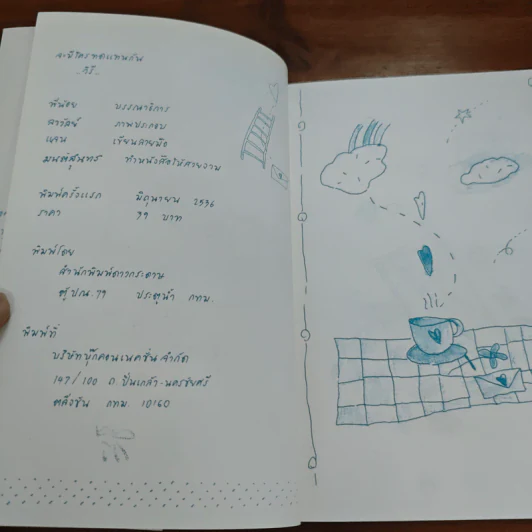 จะมีใครทดแทนกัน
พี่น้อย บรรณาธิการ
ลาวัลย์ ภาพประกอบ
แจน เขียนลายมือ
มนต์สุนทร ทำหนังสือให้สวยงาม
พิมพ์ครั้งแรก มิถุนายน 2536
ราคา 79 บาท
พิมพ์โดย
สำนักพิมพ์ดาวกระดาษ
ตู้ ปณ. 79 ประตูน้ำ กทม.
พิมพ์ที่
บริษัทบุ๊คคอนเนคชั่น จำกัด
147/100 ถ. ปิ่นเกล้า-นครชัยศรี
ตลิ่งชัน กทม. 10160